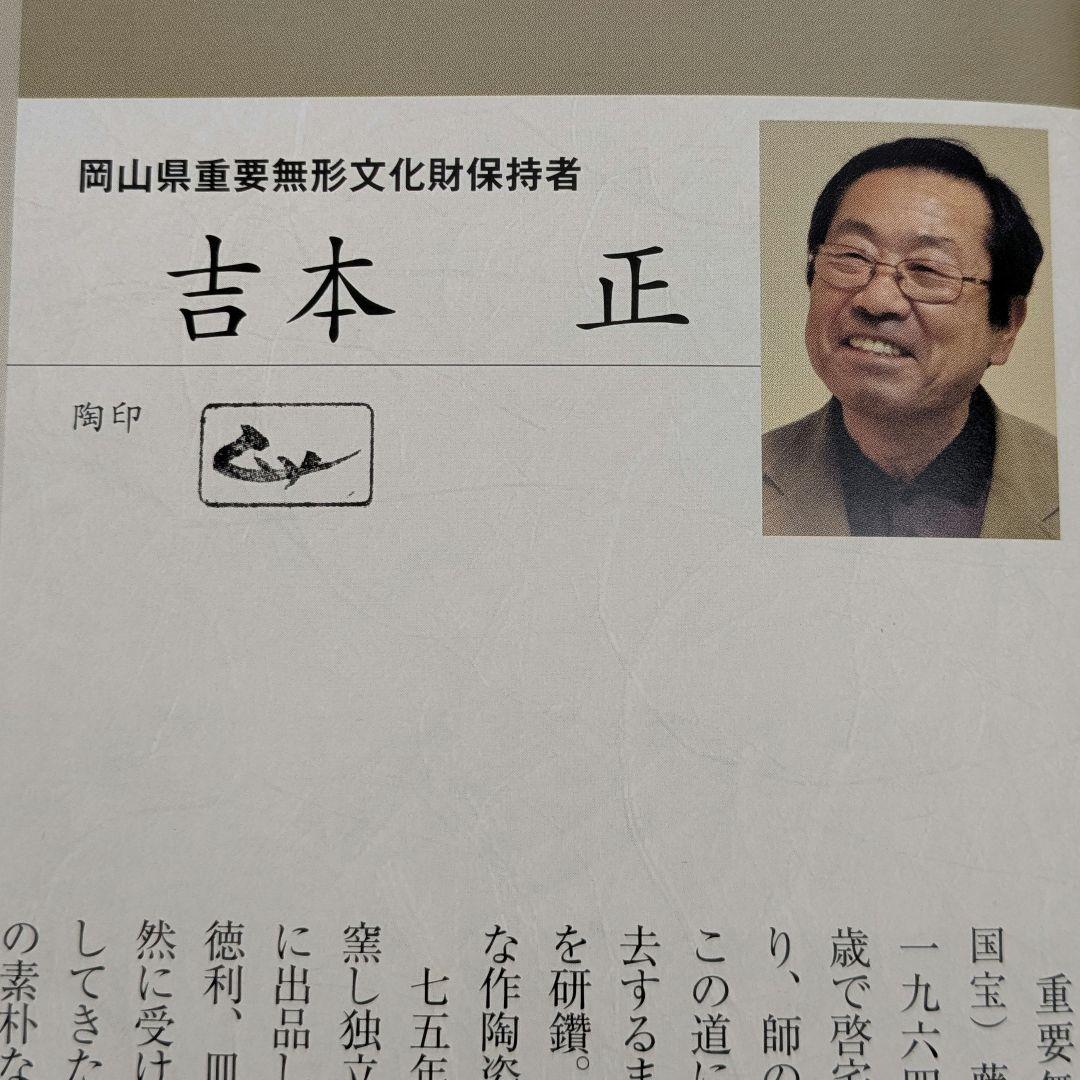 岡山県重要無形文化財保持者
吉本 正
陶印
重要無
国宝）藤
一九六四
歳で啓宅
り、師の
この道に
去するま
を研鑽。
な作陶姿
七五年
窯し独立
に出品し
徳利、皿
然に受け
してきた
の素朴な